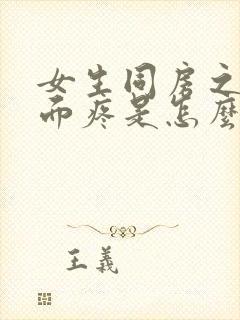 女生同房之
而疼是怎麼
王義